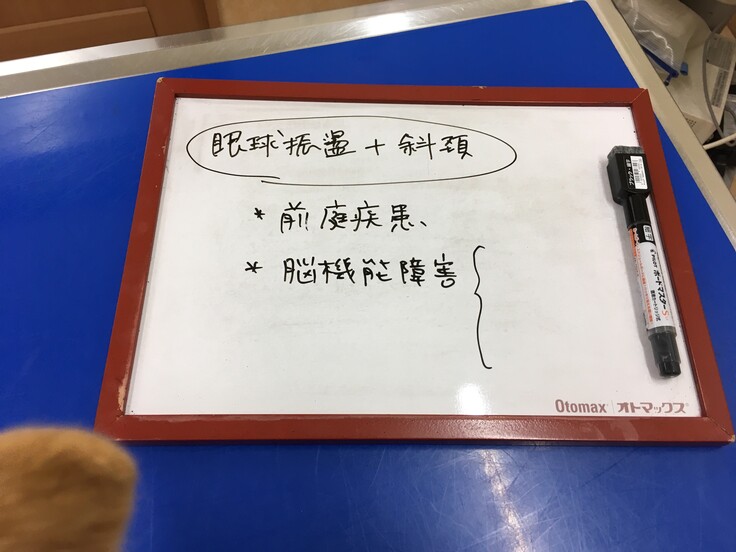 眼球振盪+斜頚
* 前庭疾患、
* 脳機能障害
Otomax オトマックス
PILOT ボードマスターS